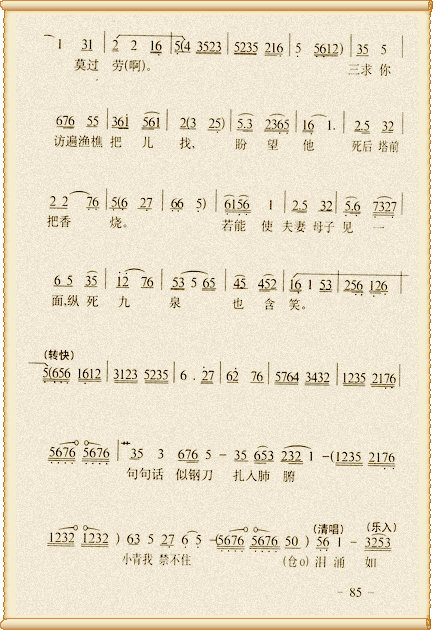 1 31 | 2 2 16 | 5(4 3523 | 5235 216 | 5 5612) | 35 5
莫过 劳(啊)。 三求 你
676 55 | 361 561 | 2(3 25) | 5.3 2365 | 16 1. | 2.5 32
访遍渔樵 把 儿 找, 盼 望 他 死后 塔前
2 2 76 | 5(6 27 | 66 5) | 6156 1 | 2.5 32 | 5.6 7327
把香 烧。 若能 使 夫妻 母子 见 一
6 5 35 | 12 76 | 53 5 65 | 45 452 | 16 1 53 | 256 126
面,纵 死 九 泉 也 含 笑。
(转快)
5(656 1612 | 3123 5235 | 6 . 27 | 62 76 | 5764 3432 | 1235 2176
5676 5676 | 35 3 676 5 - 35 653 232 1 -(1235 2176
句句话 似钢刀 扎入肺 腑
(清唱) (乐入)
1232 1232 ) 63 5 27 6 5 -(5676 5676 50 ) 56 1 - 3253
小青我 禁不住 (仓o) 泪 涌 如
- 85 -